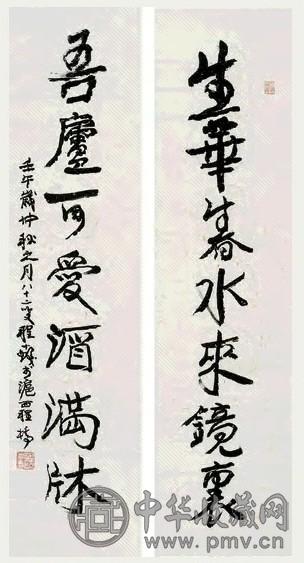 生華春水來鏡裏
吾廬可愛酒滿牀
壬午歲仲秋之月八十二叟程十髮滬西
中华收藏网
www.pmv.cn